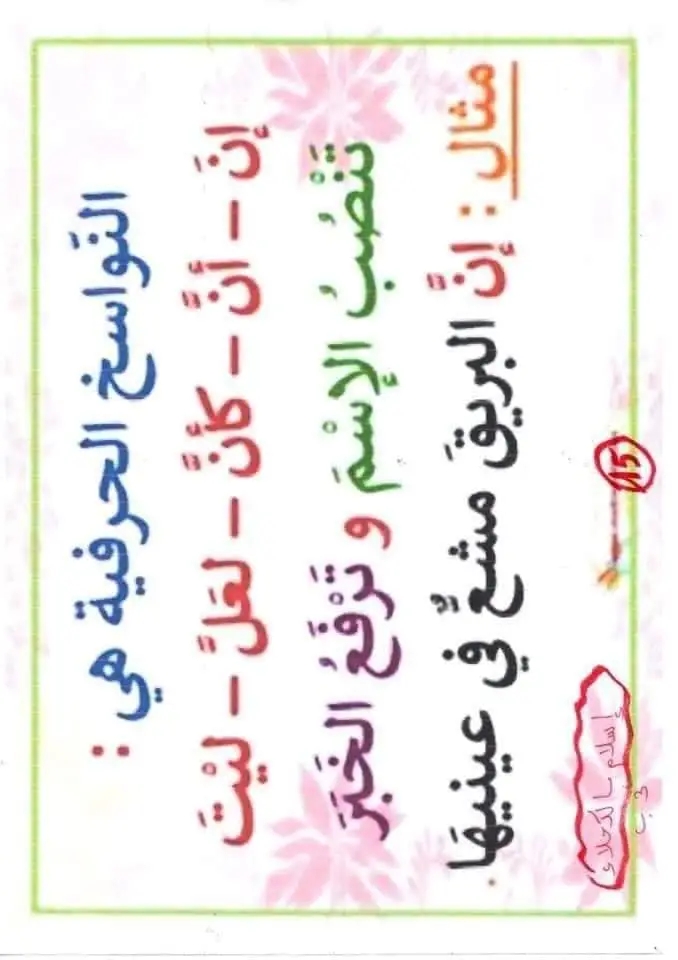 النَواسخ الحرفية هي :
إنَ – أنَّ – كأنَّ – لعَلَّ – ليْتَ
تَنْصُبُ الإسْمَ و تَرْفَعُ الخَبَرَ
مثال : إنَّ البريقَ مشعٌّ في عينيهَا.
15